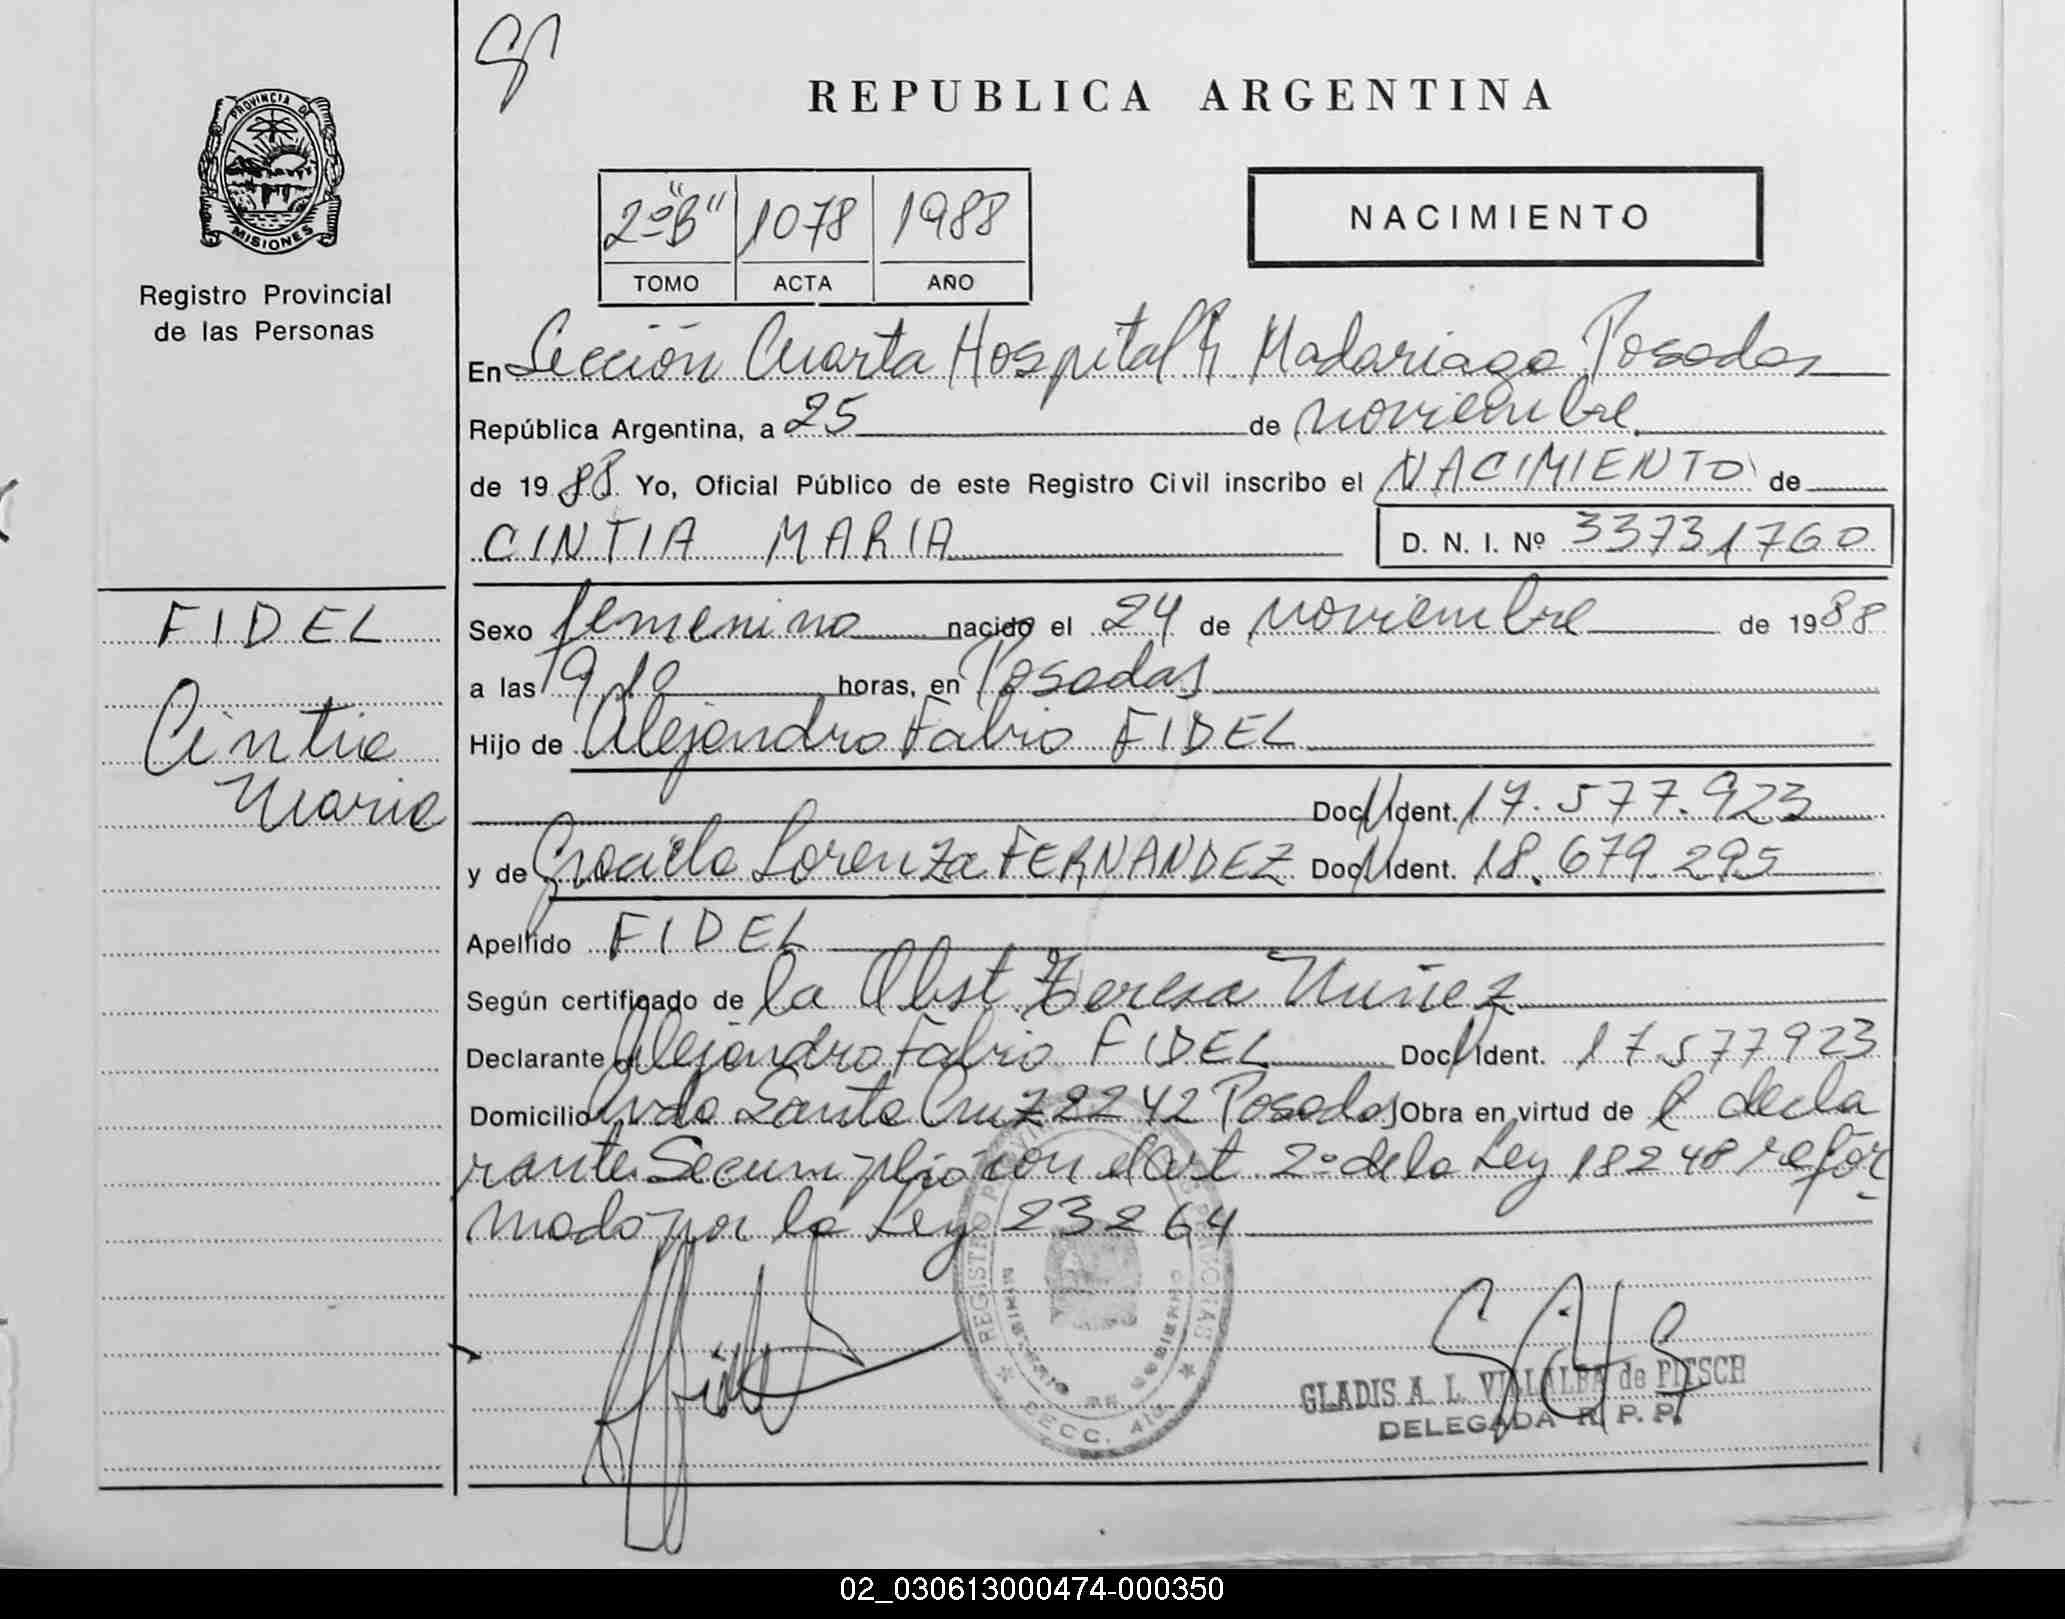 REPUBLICA ARGENTINA
PROVINCIA DE
MISIONES
Registro Provincial
de las Personas
2º "B" 1078 1988
TOMO ACTA AÑO
NACIMIENTO
En Sección Cuarta Hospital R. Madariaga Posadas
República Argentina, a 25 de noviembre
de 1988 Yo, Oficial Público de este Registro Civil inscribo el NACIMIENTO de
CINTIA MARIA D. N. I. Nº 33731760
FIDEL
Cintia
Maria
Sexo femenino nacido el 24 de noviembre de 1988
a las 19,10 horas, en Posadas
Hijo de Alejandro Fabio FIDEL
Doc. Ident. 17.577.923
y de Graciela Lorenza FERNANDEZ Doc. Ident. 18.679.295
Apellido FIDEL
Según certificado de la Obst Teresa Nuñez
Declarante Alejandro Fabio FIDEL Doc. Ident. 17577923
Domicilio Avda Santa Cruz 2242 Posadas Obra en virtud de decla
rante. Se cumplió con el art 2º de la Ley 18248 refor
mado por la Ley 23264
REGISTRO
MINISTERIO DE GOBIERNO
SECC. 4ta.
GLADIS A. L. VILLALBA de PITSCH
DELEGADA R. P. P.
02_030613000474-000350